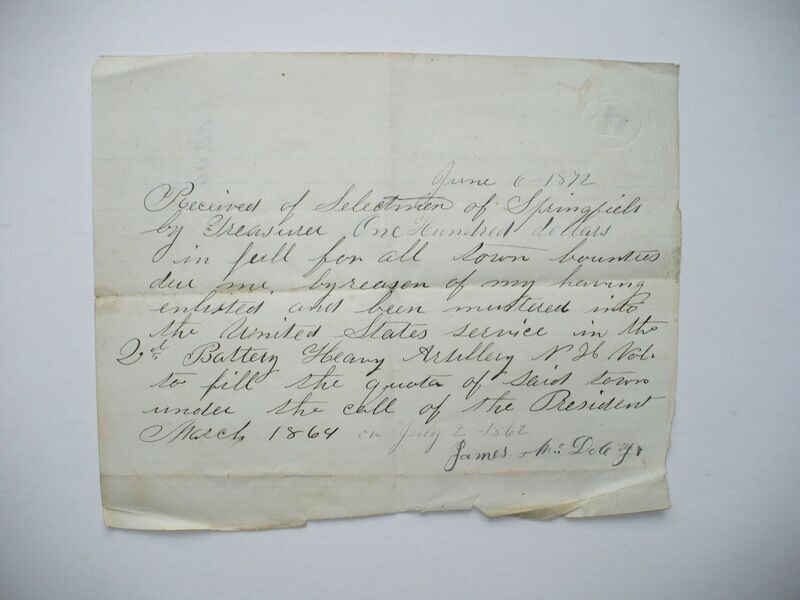 June 6-1872
Received of Selectmen of Springfield
by Treasurer One Hundred dollars
in full for all town bounties
due me, by reason of my having
enlisted and been mustered into
the United States service in the
2d Battery Heavy Artillery N H Vol.
to fill the quota of said town
under the call of the President
March 1864 or July 2-1862
James Mc Dole Jr